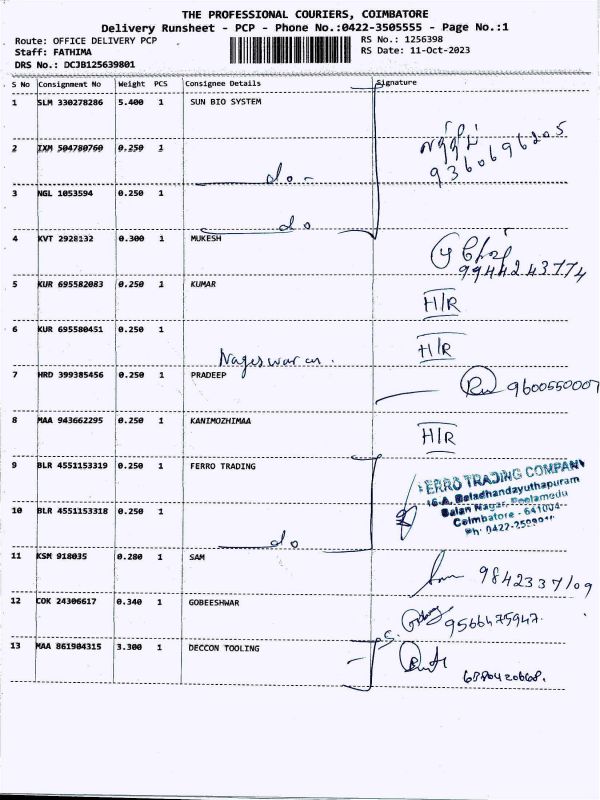 THE PROFESSIONAL COURIERS, COIMBATORE
Delivery Runsheet - PCP - Phone No.:0422-3505555 - Page No.:1
Route: OFFICE DELIVERY PCP RS No.: 1256398
Staff: FATHIMA RS Date: 11-Oct-2023
DRS No.: DCJB125639801
S No Consignment No Weight PCS Consignee Details Signature
1 SLM 330278286 5.400 1 SUN BIO SYSTEM
2 IXM 504780760 0.250 1
do - 9360696205
3 NGL 1053594 0.250 1
do
4 KVT 2928132 0.300 1 MUKESH
9944243774
5 KUR 695582083 0.250 1 KUMAR H/R
6 KUR 695580451 0.250 1 H/R
Nageswaran.
7 HRD 399385456 0.250 1 PRADEEP 9600550007
8 MAA 943662295 0.250 1 KANIMOZHIMAA H/R
9 BLR 4551153319 0.250 1 FERRO TRADING
FERRO TRADING COMPANY
16-A, Baladhandayuthapuram
Balan Nagar, Peelamedu
Coimbatore - 641004
Ph: 0422-
10 BLR 4551153318 0.250 1
do
11 KSM 918035 0.280 1 SAM 9842337109
12 COK 24306617 0.340 1 GOBEESHWAR 9566475947.
13 MAA 861904315 3.300 1 DECCON TOOLING